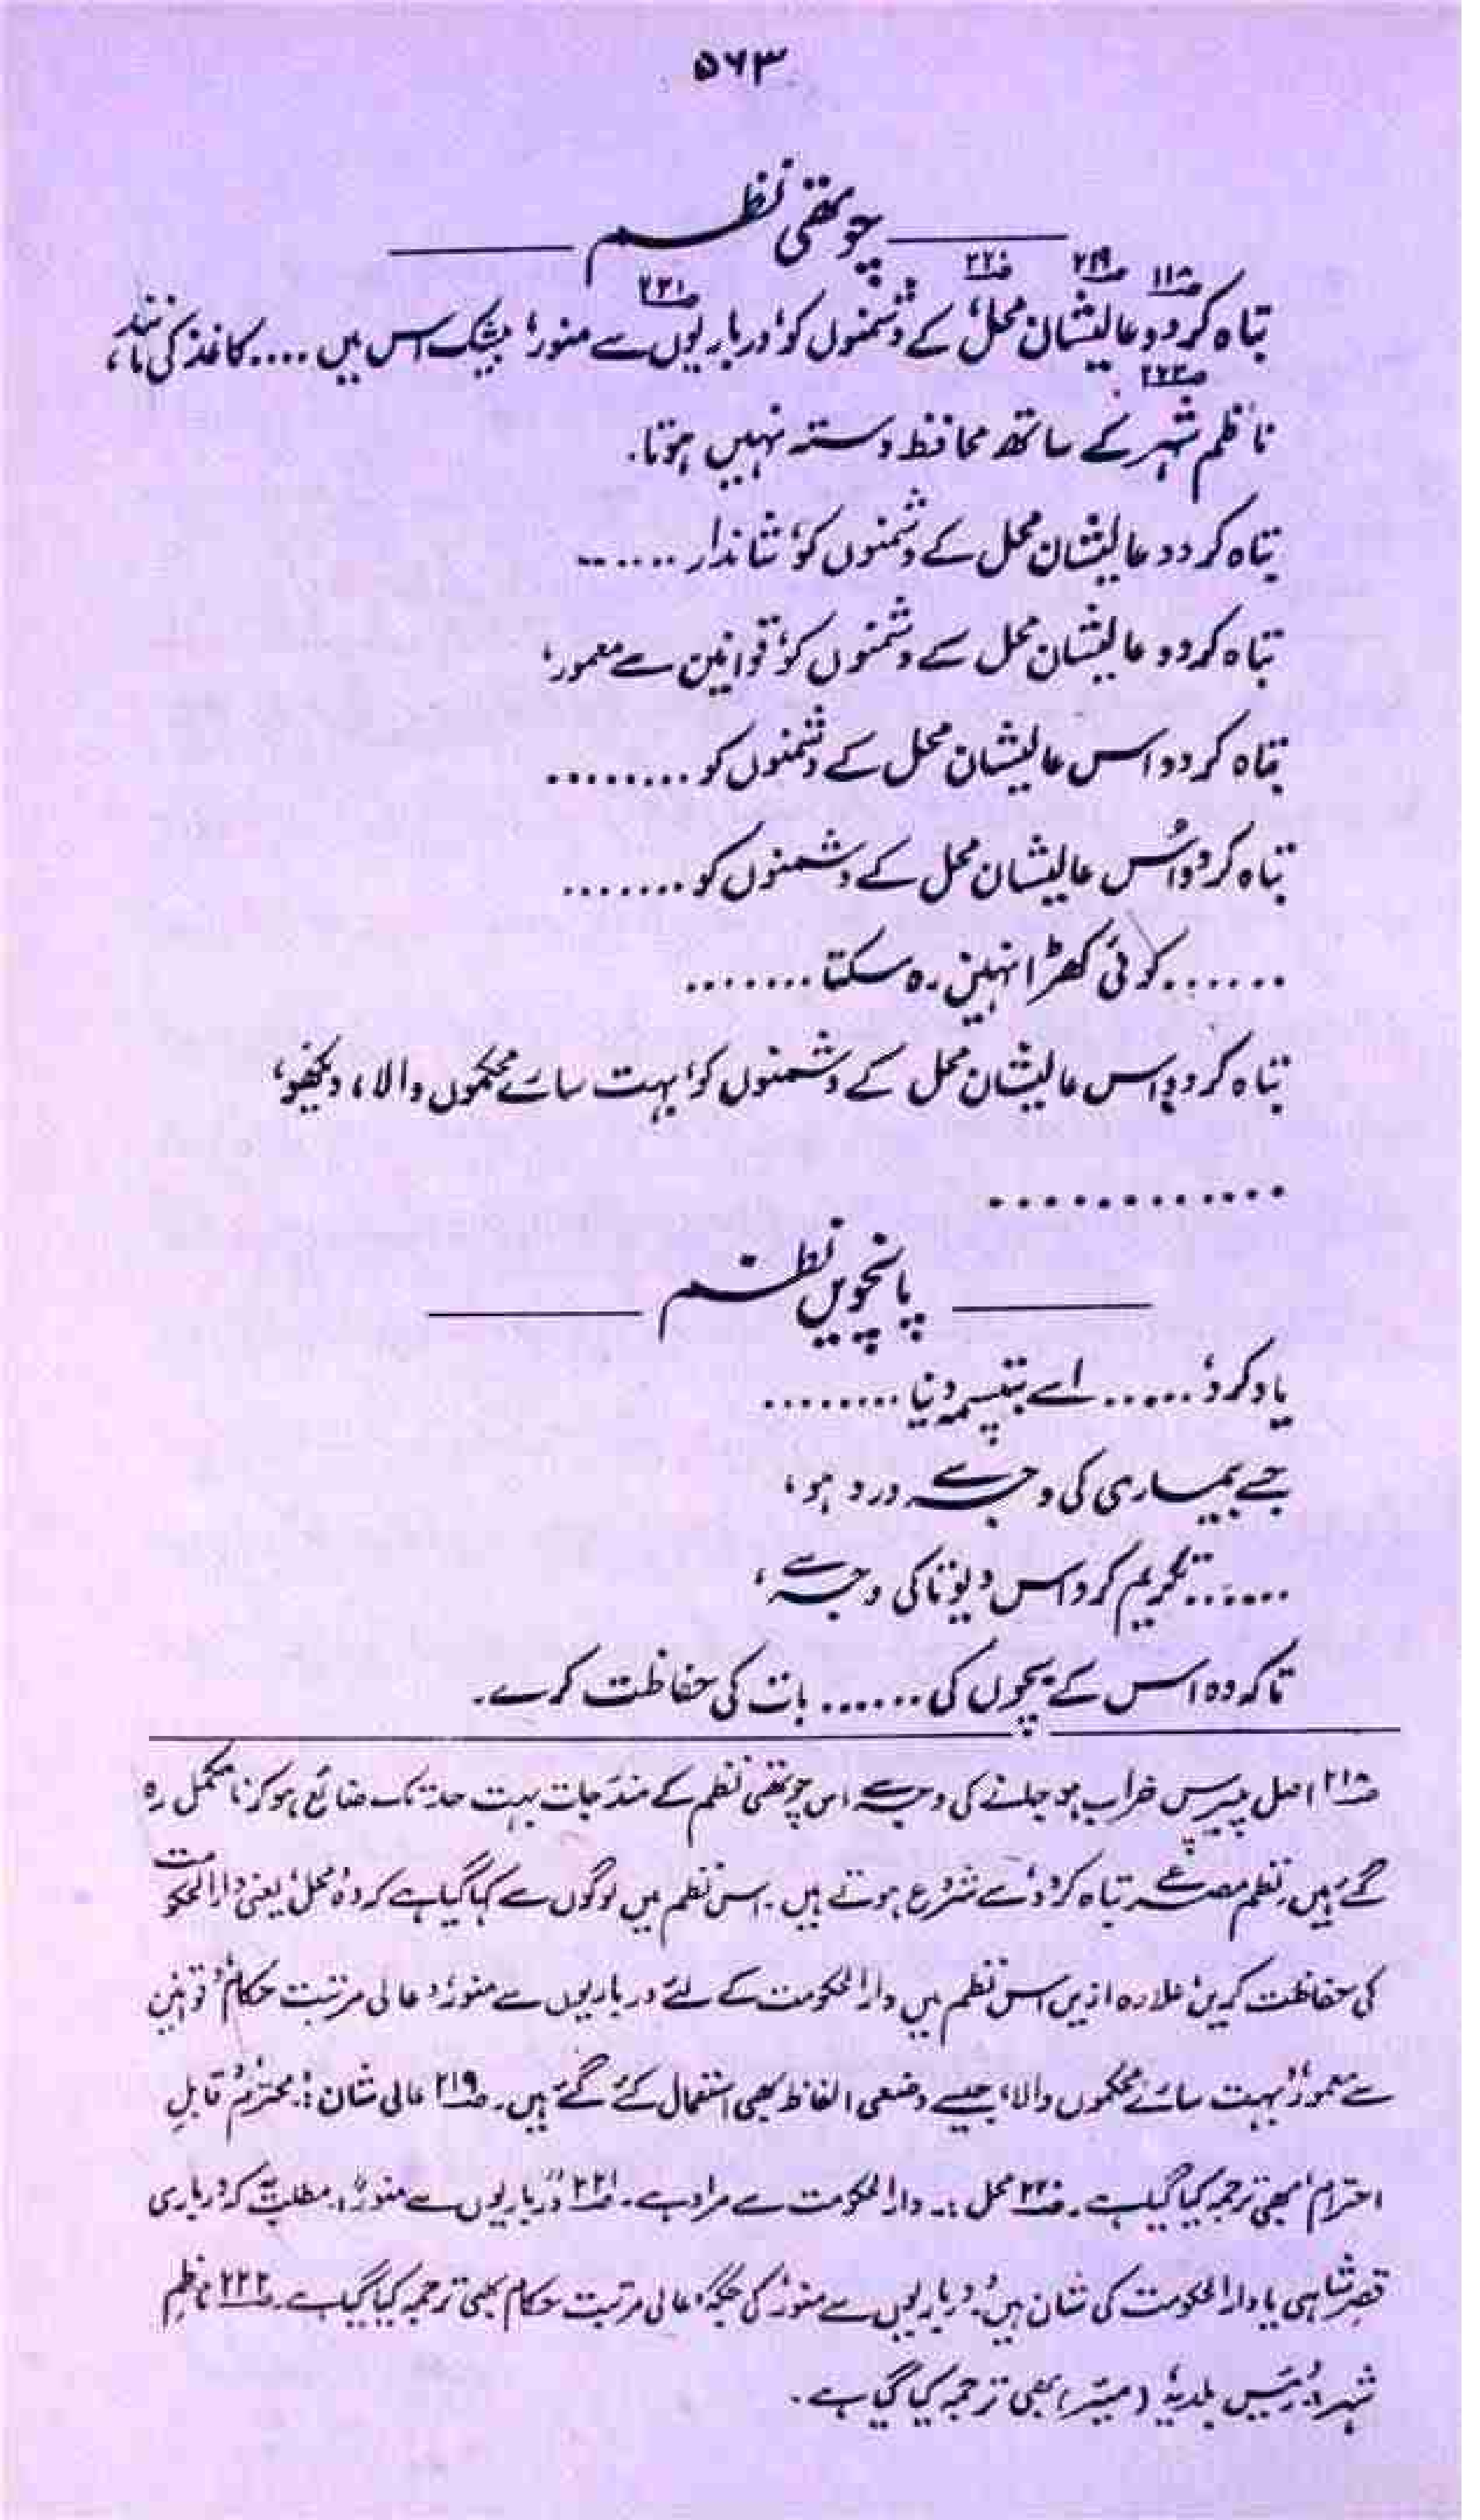 ۵۶۳
چوتھی نظم
تباہ کردو عالیشان محل کے دشمنوں کو، درباریوں سے منور، بیشک اس میں .... کاغذ کی مانند،
ناظم شہر کے ساتھ محافظ دستہ نہیں ہوتا۔
تباہ کردو عالیشان محل کے دشمنوں کو، شاندار ......
تباہ کردو عالیشان محل کے دشمنوں کو، قوانین سے معمور،
تباہ کردو اس عالیشان محل کے دشمنوں کو ........
تباہ کردو اُس عالیشان محل کے دشمنوں کو .......
...... کوئی کھڑا نہیں رہ سکتا .......
تباہ کردو اس عالیشان محل کے دشمنوں کو، بہت سارے محکموں والا، دیکھو،
............
پانچویں نظم
یاد کرو، ...... اے بپتسمہ دنیا ........
جسے بیماری کی وجہ سے درد ہو،
...... تکریم کرو اس دیوتا کی وجہ سے،
تاکہ وہ اس کے بچوں کی ...... بات کی حفاظت کرے۔
۲۱۸ اصل پیپرس خراب ہو جانے کی وجہ سے اس چوتھی نظم کے مندرجات بہت حد تک ضائع ہو کر نامکمل رہ
گئے ہیں۔ نظم مصرعے 'تباہ کردو' سے شروع ہوتے ہیں۔ اس نظم میں لوگوں سے کہا گیا ہے کہ وہ 'محل' یعنی دارالحکومت
کی حفاظت کریں، علاوہ ازیں اس نظم میں دارالحکومت کے لئے 'درباریوں سے منور'، 'عالی مرتبت حکام'، 'قوانین
سے معمور'، 'بہت سارے محکموں والا' جیسے وضعی الفاظ بھی استعمال کئے گئے ہیں۔ ۲۱۹ عالی شان :۔ محترم، قابلِ
احترام' بھی ترجمہ کیا گیا ہے۔ ۲۲۰ محل :۔ دارالحکومت سے مراد ہے۔ ۲۲۱ "درباریوں سے منور" :۔ مطلب یہ کہ درباری
قصرِ شاہی یا دارالحکومت کی شان ہیں، 'درباریوں سے منور' کی جگہ 'عالی مرتبت حکام' بھی ترجمہ کیا گیا ہے۔ ۲۲۲ ناظمِ
شہر :۔ 'رئیس بلدیہ' (میئر) بھی ترجمہ کیا گیا ہے۔